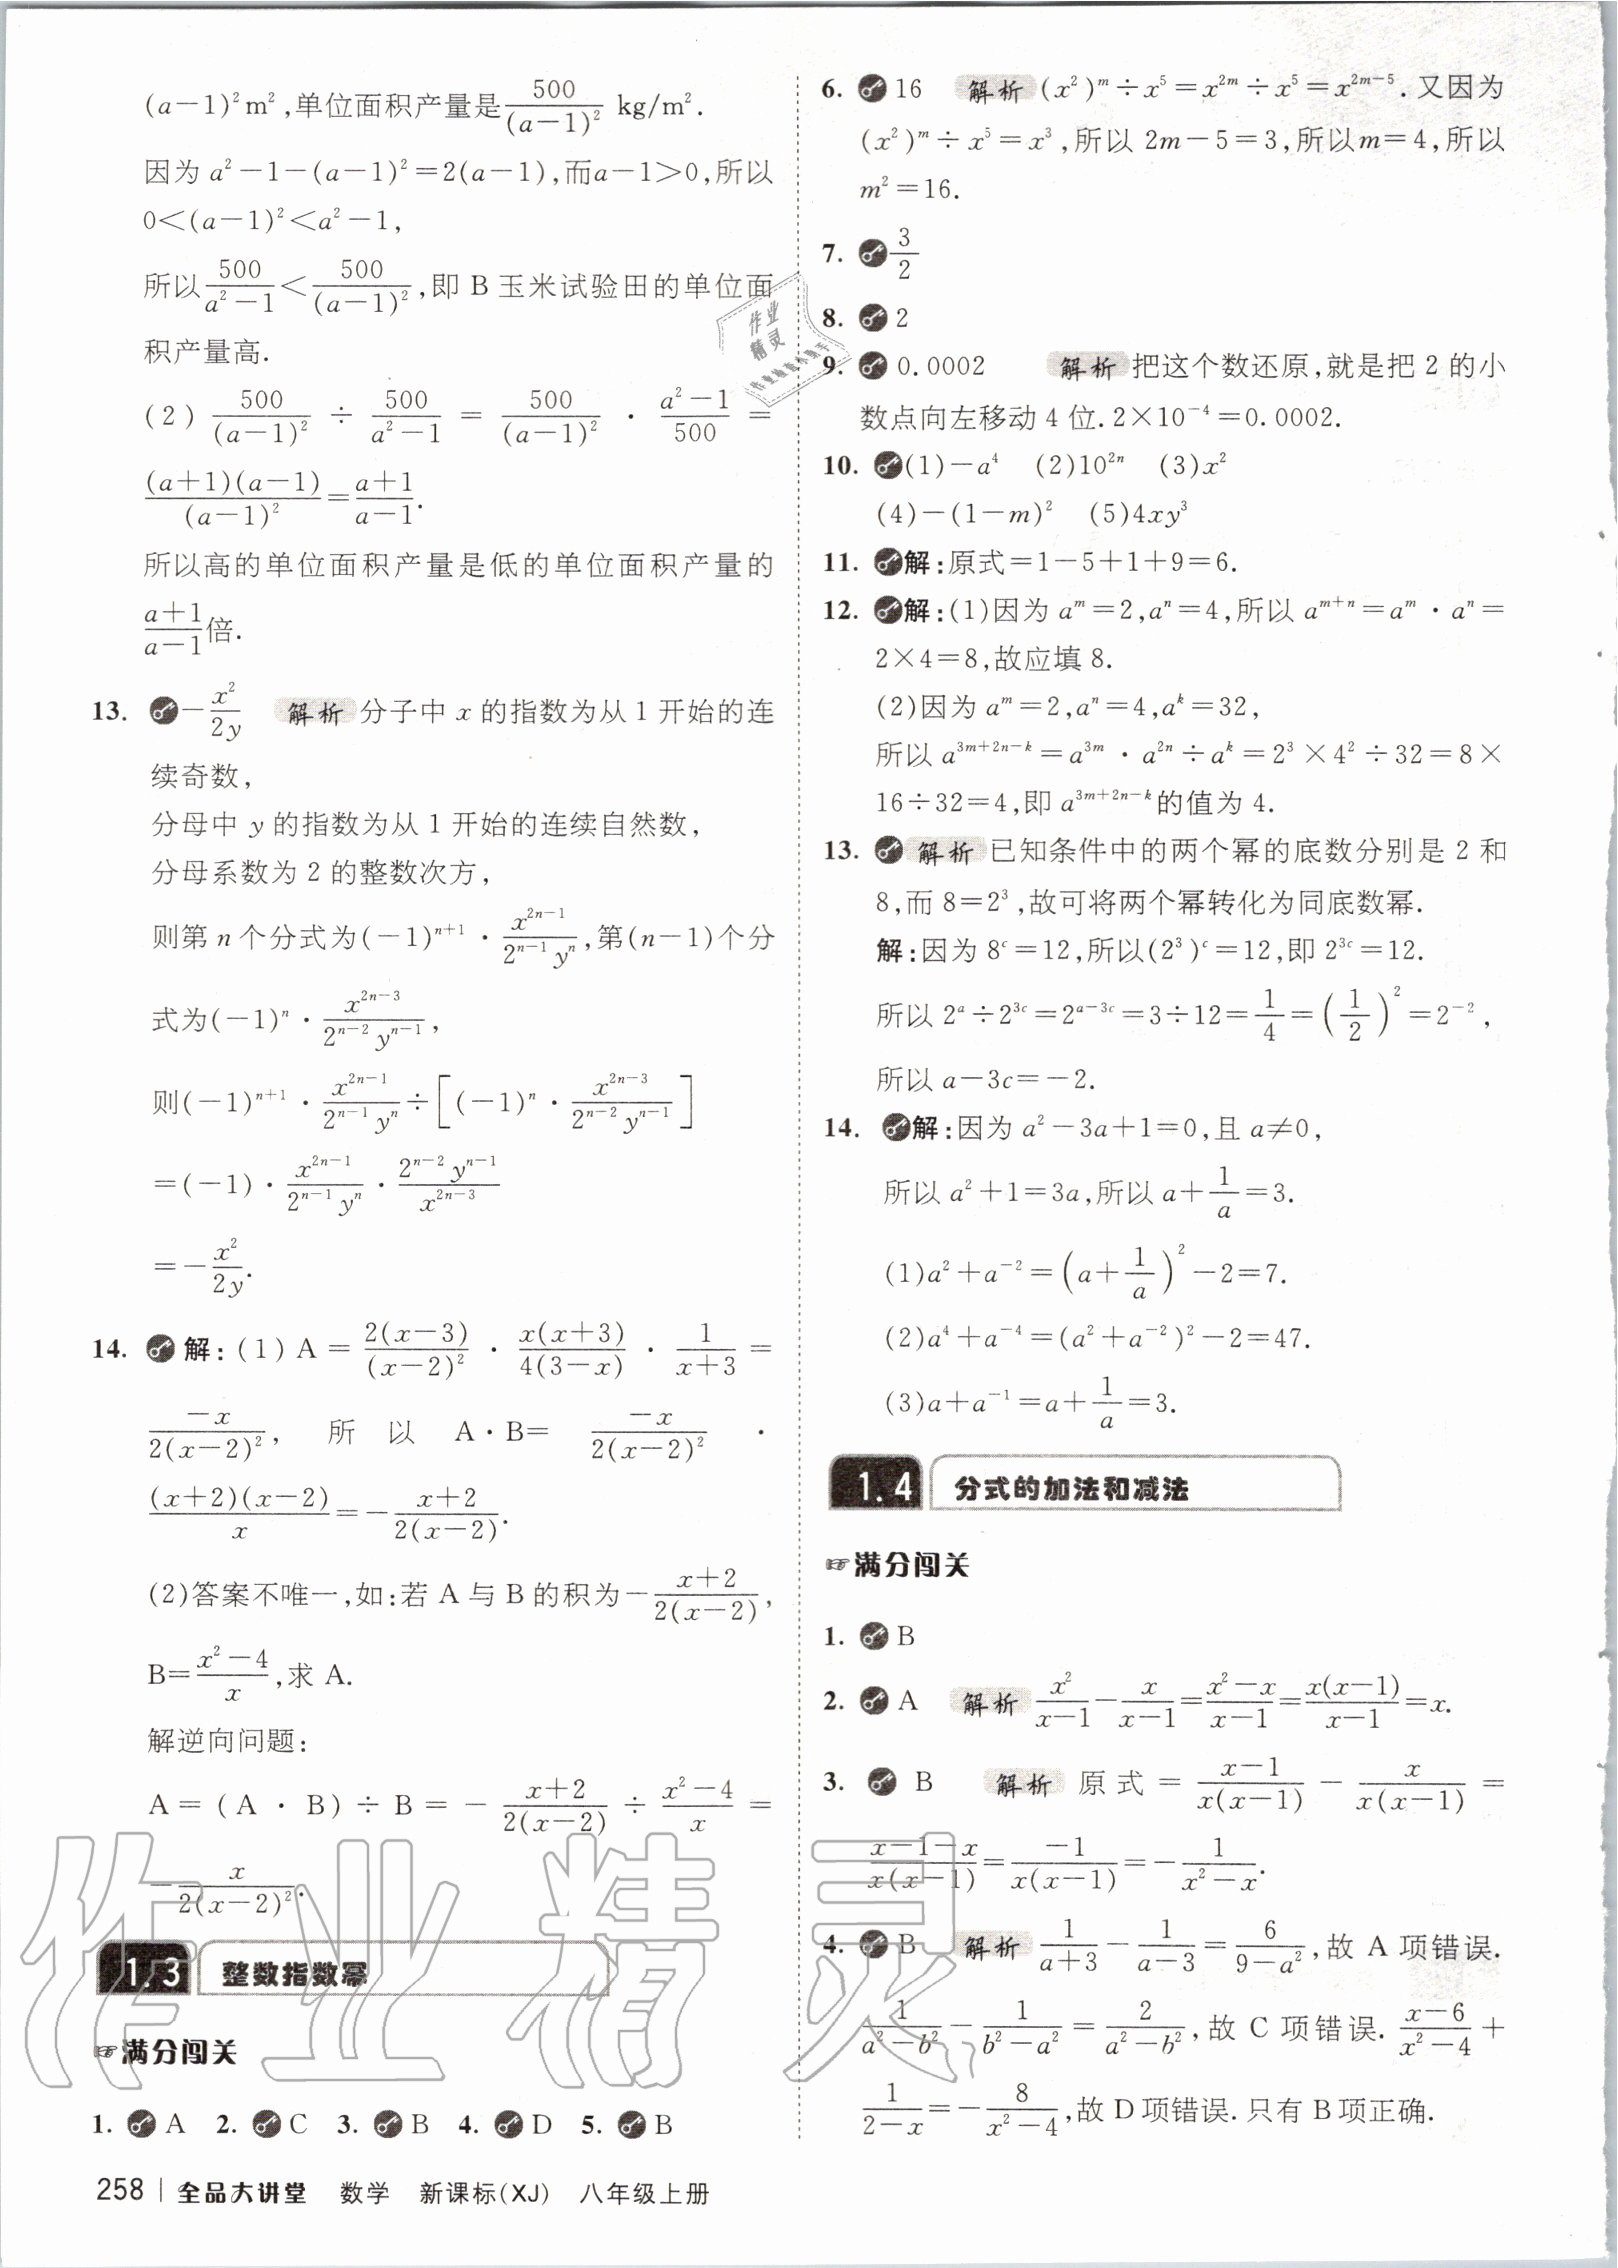 (a－1)²m²,单位面积产量是500/(a－1)² kg/m².
因为 a²－1－(a－1)²＝2(a－1),而a－1＞0,所以
0＜(a－1)²＜a²－1,
所以500/(a²－1)＜500/(a－1)²,即 B 玉米试验田的单位面
积产量高.
(2) 500/(a－1)² ÷ 500/(a²－1) ＝ 500/(a－1)² · (a²－1)/500 ＝
(a＋1)(a－1)/(a－1)²＝(a＋1)/(a－1).
所以高的单位面积产量是低的单位面积产量的
(a＋1)/(a－1)倍.
13. －x²/2y 解析 分子中 x 的指数为从 1 开始的连
续奇数,
分母中 y 的指数为从 1 开始的连续自然数,
分母系数为 2 的整数次方,
则第 n 个分式为(－1)ⁿ⁺¹ · x²ⁿ⁻¹/(2ⁿ⁻¹yⁿ),第(n－1)个分
式为(－1)ⁿ · x²ⁿ⁻³/(2ⁿ⁻²yⁿ⁻¹),
则(－1)ⁿ⁺¹ · x²ⁿ⁻¹/(2ⁿ⁻¹yⁿ) ÷ [(－1)ⁿ · x²ⁿ⁻³/(2ⁿ⁻²yⁿ⁻¹)]
＝(－1) · x²ⁿ⁻¹/(2ⁿ⁻¹yⁿ) · 2ⁿ⁻²yⁿ⁻¹/x²ⁿ⁻³
＝－x²/2y.
14. 解:(1) A＝2(x－3)/(x－2)² · x(x＋3)/4(3－x) · 1/(x＋3)＝
－x/2(x－2)², 所以 A·B＝ －x/2(x－2)² ·
(x＋2)(x－2)/x＝－(x＋2)/2(x－2).
(2)答案不唯一,如:若 A 与 B 的积为－(x＋2)/2(x－2),
B＝(x²－4)/x,求 A.
解逆向问题:
A＝(A·B)÷B＝－(x＋2)/2(x－2)÷(x²－4)/x＝
－x/2(x－2)².
1.3 整数指数幂
☞满分闯关
1. A 2. C 3. B 4. D 5. B
258 | 全品大讲堂 数学 新课标(XJ) 八年级上册
6. 16 解析 (x²)ᵐ÷x⁵＝x²ᵐ÷x⁵＝x²ᵐ⁻⁵. 又因为
(x²)ᵐ÷x⁵＝x³,所以 2m－5＝3,所以m＝4,所以
m²＝16.
7. 3/2
8. 2
9. 0.0002 解析 把这个数还原,就是把 2 的小
数点向左移动 4 位. 2×10⁻⁴＝0.0002.
10. (1)－a⁴ (2)10²ⁿ (3)x²
(4)－(1－m)² (5)4xy³
11. 解:原式＝1－5＋1＋9＝6.
12. 解:(1)因为 aᵐ＝2,aⁿ＝4,所以 aᵐ⁺ⁿ＝aᵐ·aⁿ＝
2×4＝8,故应填 8.
(2)因为 aᵐ＝2,aⁿ＝4,aᵏ＝32,
所以 a³ᵐ⁺²ⁿ⁻ᵏ＝a³ᵐ·a²ⁿ÷aᵏ＝2³×4²÷32＝8×
16÷32＝4,即 a³ᵐ⁺²ⁿ⁻ᵏ的值为 4.
13. 解析 已知条件中的两个幂的底数分别是 2 和
8,而 8＝2³,故可将两个幂转化为同底数幂.
解:因为 8ᶜ＝12,所以(2³)ᶜ＝12,即 2³ᶜ＝12.
所以 2ᵃ÷2³ᶜ＝2ᵃ⁻³ᶜ＝3÷12＝1/4＝(1/2)²＝2⁻²,
所以 a－3c＝－2.
14. 解:因为 a²－3a＋1＝0,且 a≠0,
所以 a²＋1＝3a,所以 a＋1/a＝3.
(1)a²＋a⁻²＝(a＋1/a)²－2＝7.
(2)a⁴＋a⁻⁴＝(a²＋a⁻²)²－2＝47.
(3)a＋a⁻¹＝a＋1/a＝3.
1.4 分式的加法和减法
☞满分闯关
1. B
2. A 解析 x²/(x－1)－x/(x－1)＝(x²－x)/(x－1)＝x(x－1)/(x－1)＝x.
3. B 解析 原式＝(x－1)/x(x－1)－x/x(x－1)＝
(x－1－x)/x(x－1)＝－1/x(x－1)＝－1/(x²－x).
4. B 解析 1/(a＋3)－1/(a－3)＝6/(9－a²),故 A 项错误.
1/(a²－b²)－1/(b²－a²)＝2/(a²－b²),故 C 项错误. (x－6)/(x²－4)＋
1/(2－x)＝－8/(x²－4),故 D 项错误. 只有 B 项正确.
作业精灵
作业
精灵